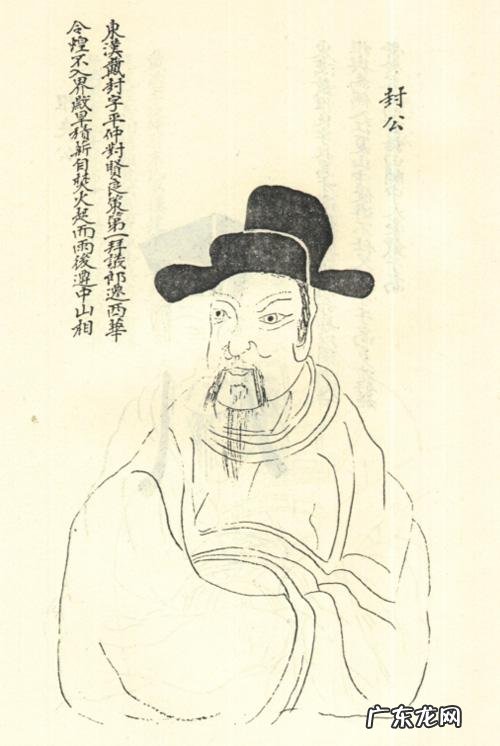 封公
東漢戴封字平仲對賢良策第一拜議郎遷西華
令蝗不入界歲旱積薪自焚火起而雨後遷中山相
广东龙网